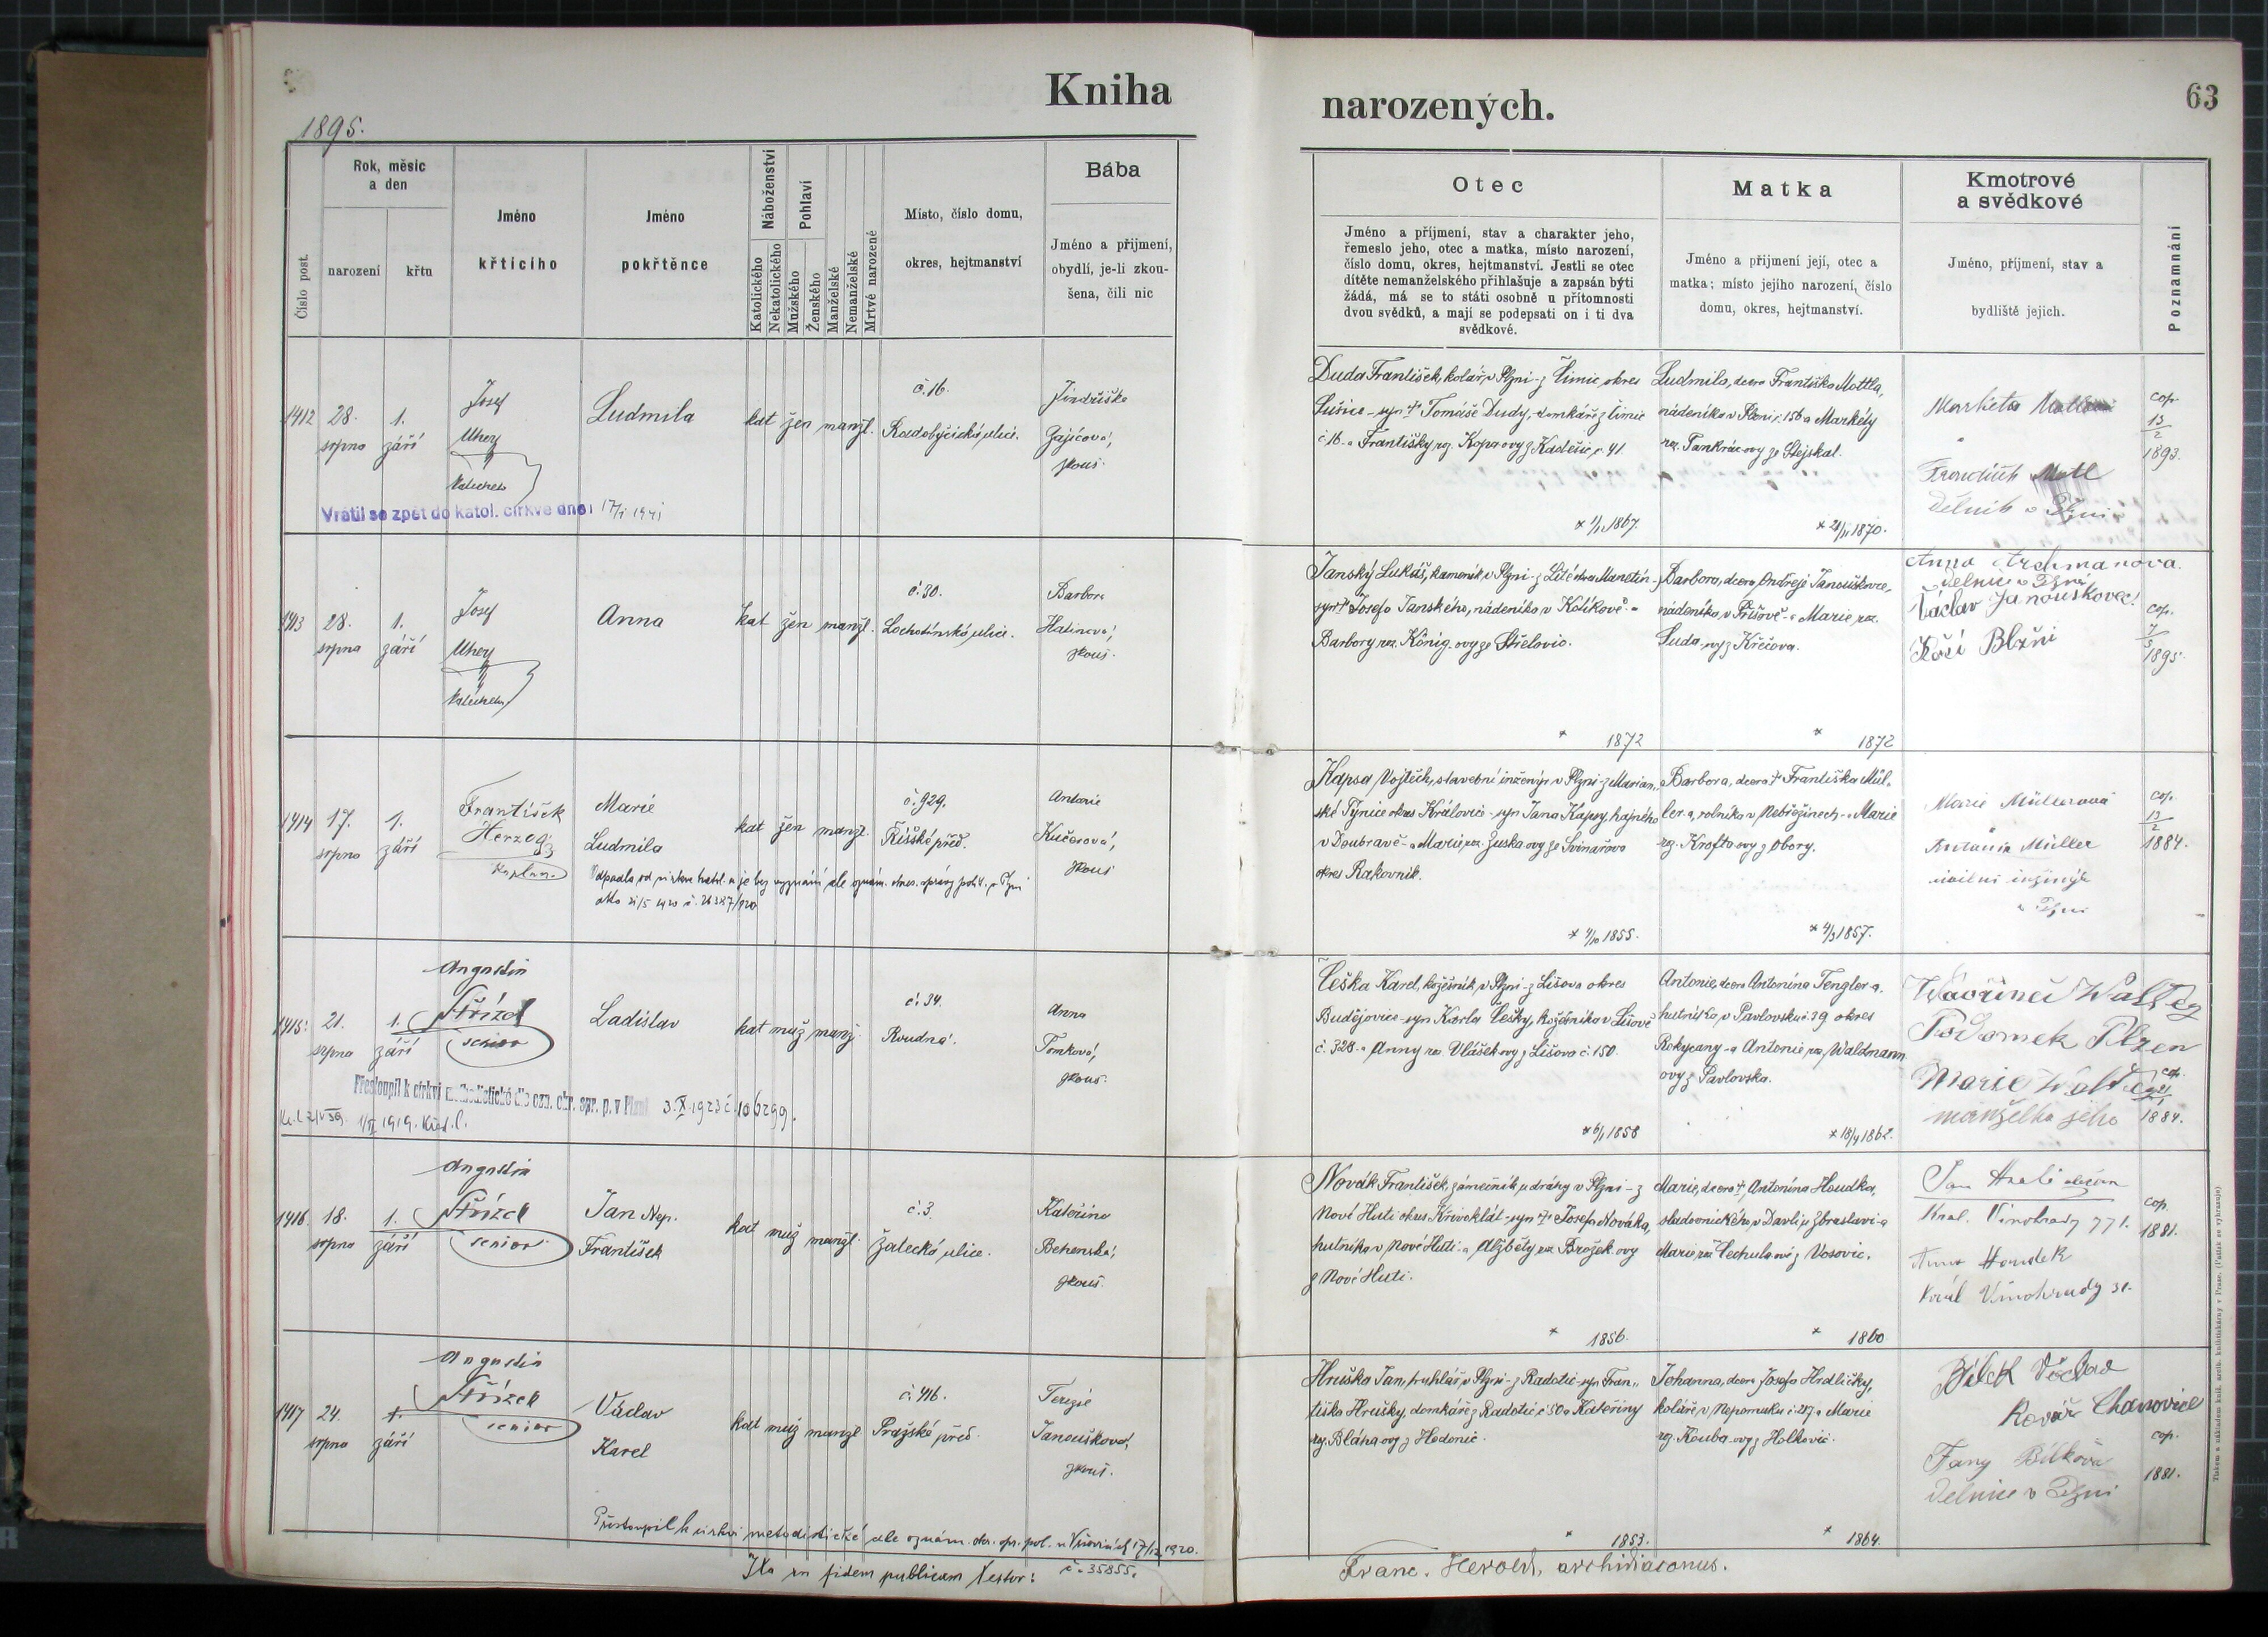 Kniha
narozených.
63
1895.
Číslo post.
Rok, měsíc
a den
narození
křtu
Jméno
křtícího
Jméno
pokřtěnce
Náboženství
Katolického
Nekatolického
Pohlaví
Mužského
Ženského
Manželské
Nemanželské
Mrtvé narozené
Místo, číslo domu,
okres, hejtmanství
Bába
Jméno a přijmení,
obydlí, je-li zkou-
šena, čili nic
Otec
Jméno a příjmení, stav a charakter jeho,
řemeslo jeho, otec a matka, místo narození,
číslo domu, okres, hejtmanství. Jestli se otec
dítěte nemanželského přihlašuje a zapsán býti
žádá, má se to státi osobně u přítomnosti
dvou svědků, a mají se podepsati on i ti dva
svědkové.
Matka
Jméno a přijmení její, otec a
matka; místo jejího narození, číslo
domu, okres, hejtmanství.
Kmotrové
a svědkové
Jméno, příjmení, stav a
bydliště jejich.
Poznamnání
1412
28.
srpna
1.
září
Josef
Uhey
Ludmila
kat žen manžl.
č. 16.
Radobyčická ulice.
Jindřiška
Gajicová,
zkouš.
Vrátil se zpět do katol. církve dne: 17/I 1941
Duda František, kolář v Plzni - z Čimic, okres
Sušice - syn † Tomáše Dudy, domkáře z Čimic
č. 16. a Františky roz. Kopa ovy z Kadešic, č. 41.
1867.
Ludmila, dcera Františka Mottla,
nádeníka v Plzni č. 156 a Markéty
roz. Pankrác ovy ze Stejskal.
1870.
Markéta
František Motl
Dělník v Plzni
cop.
13/2
1893.
1413
28.
srpna
1.
září
Josef
Uhey
Anna
kat žen manžl.
č. 30.
Lochotínská ulice.
Barbora
Halinová,
zkouš.
Janský Lukáš, kameník v Plzni - z
syn † Josefa Janského, nádeníka v Kolíkově - a
Barbory roz. König - ovy ze Střelovic.
1872
Barbora, dcera Ondřeje Janouškovce,
nádeníka v Příšově - a Marie roz.
Suda - ovy z Křečova.
1872
Anna
dělnice v Plzni
Václav Janouškovec
cop.
7/5
1895.
1414
17.
srpna
1.
září
František
Herzog
kaplan.
Marie
Ludmila
kat žen manžl.
č. 929.
Říšské před.
Antonie
Kučerová,
zkouš
Odpadla od církve katol. a je bez vyznání dle oznám. okres. správy polit. v Plzni
Kapsa Vojtěch, stavební inženýr v Plzni - z Marian-
ské Týnice okres Kralovic - syn Jana Kapsy, hajného
v Doubravě - a Marie roz. Zuska ovy ze Svinařova
okres Rakovník.
1855.
Barbora, dcera † Františka Mül-
ler-a, rolníka v Nebřežinech - a Marie
roz. Krofta ovy z Obory.
1857.
Marie Müllerová
Antonín Müller
civilní inženýr
v Plzni
cop.
13/2
1884.
1415
21.
srpna
1.
září
Augustin
Střízek
senior
Ladislav
kat muž manž.
č. 34.
Roudná.
Anna
Tomková,
zkouš.
Přestoupil k církvi methodistické dle ozn. okr. spr. p. v Plzni 3. X. 1923
Češka Karel, kožešník v Plzni - z Lišova okres
Budějovice - syn Karla Češky, kožešníka v Lišově
č. 328. - a Anny roz. Vlášek ovy z Lišova č. 150.
1858
Antonie, dcera Antonína Tengler-a,
hutníka v Pavlovsku č. 39 okres
Rokycany - a Antonie roz. Waldmann
ovy z Pavlovska.
1862.
Plzen
Marie
manželka jeho
cop.
1884.
1416
18.
srpna
1.
září
Augustin
Střízek
senior
Jan Nep.
František
kat muž manžl.
č. 3.
Žatecká ulice.
Kateřina
Behenská,
zkouš.
Novák František, zámečník u dráhy v Plzni - z
Nové Huti okres Křivoklát - syn † Josefa Nováka,
hutníka v Nové Huti - a Alžběty roz. Brožek ovy
z Nové Huti.
1856.
Marie, dcera † Antonína Houdka,
sládovnického v Davli u Zbraslavi - a
Marie roz. Čechulovi z Vosovic.
1860
Král. Vinohrady 771.
Anna Houdek
Král Vinohrady 31.
cop.
1881.
1417
24.
srpna
1.
září
Augustin
Střízek
senior
Václav
Karel
kat muž manžl
č. 416.
Pražské před.
Terezie
Janoušková,
zkouš.
Přestoupil k církvi metodistické dle oznám. okr. spr. pol. 17/12 1920.
č. 35855.
Hruška Jan, truhlář v Plzni - z Radotic - syn Fran-
tiška Hrušky, domkáře z Radotic č. 50 a Kateřiny
roz. Bláha ovy z Hodonic.
1853.
Johanna, dcera Josefa Hrdličky,
koláře v Nepomuku č. 217 a Marie
roz. Kouba - ovy z Holkovic.
1864.
Bílek Václav
Kovář Chanovice
Fany Bílková
Dělnice v Plzni
cop.
1881.
Ita in fidem publicam testor:
Franc. Herold, archidiaconus.